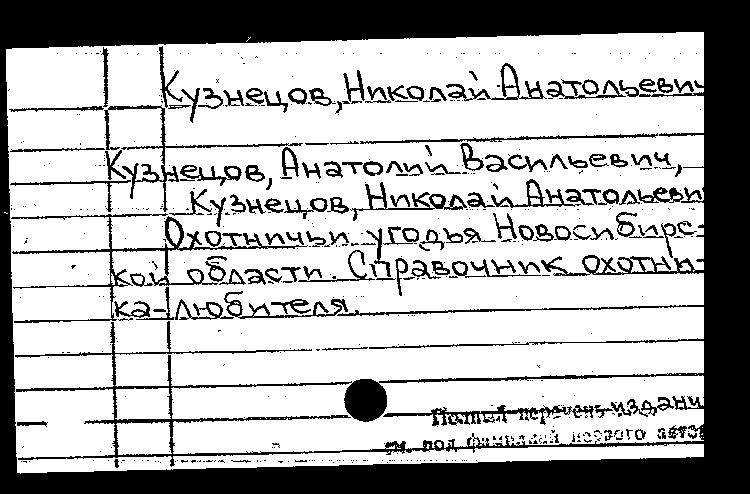 Кузнецов, Николай Анатольевич
Кузнецов, Анатолий Васильевич,
Кузнецов, Николай Анатольеви
Охотничьи угодья Новосибирс-
кой области. Справочник охотни-
ка-любителя.
Полный перечень издани
см. под фамилией первого автор